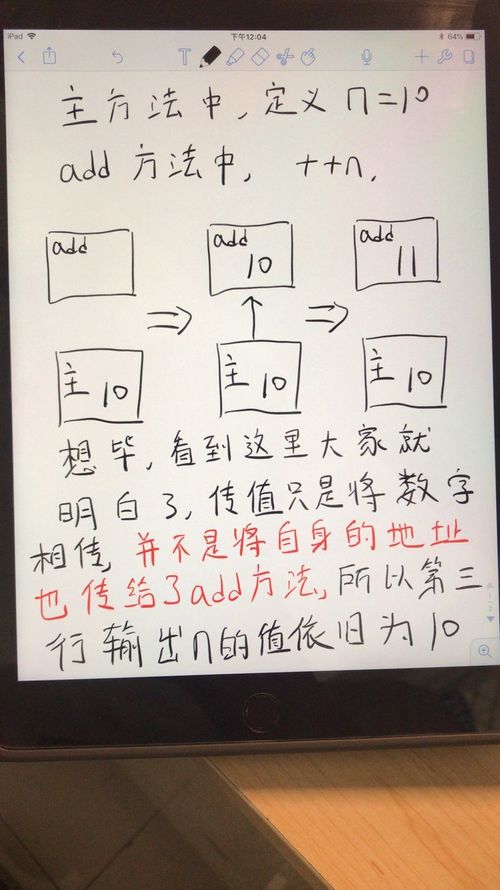 iPad 下午12:04 64%
T
主方法中,定义 n=10
add 方法中, ++n,
add add 10 add 11
主 10 主 10 主 10
想毕,看到这里大家就
明白了,传值只是将数字
相传,并不是将自身的地址
也传给了add方法,所以第三
行输出n的值依旧为 10